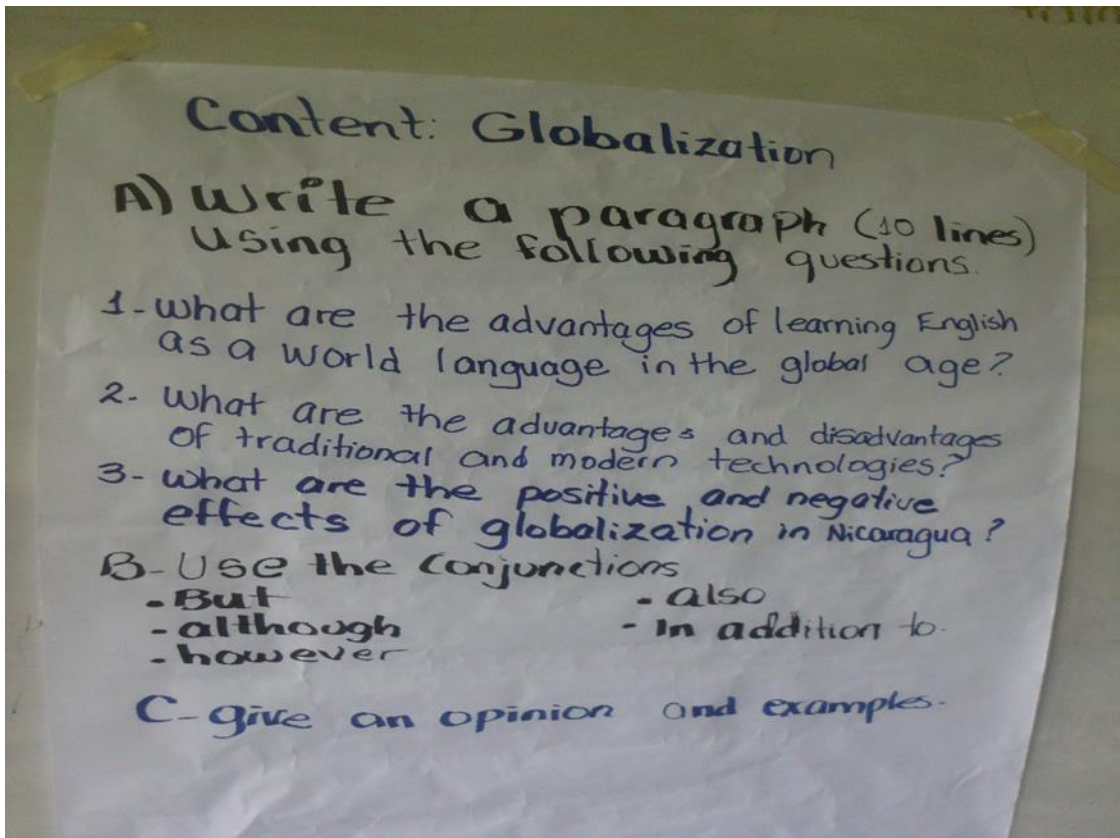 Content: Globalization
A) Write a paragraph (10 lines)
Using the following questions.
1- What are the advantages of learning English
as a world language in the global age?
2- What are the advantages and disadvantages
of traditional and modern technologies?
3- What are the positive and negative
effects of globalization in Nicaragua?
B- Use the Conjunctions
- But
- also
- although
- In addition to.
- however
C- give an opinion and examples.